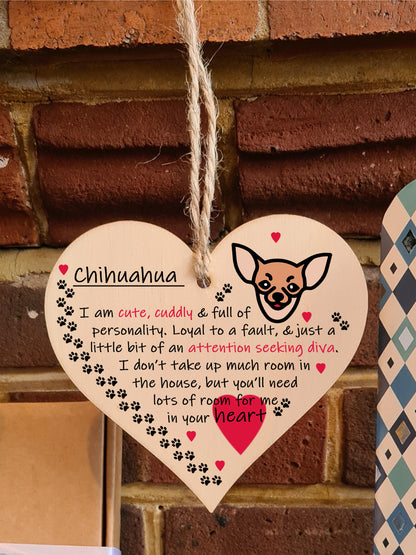 Chihuahua
I am cute, cuddly & full of
personality. Loyal to a fault, & just a
little bit of an attention seeking diva.
I don't take up much room in
the house, but you'll need
lots of room for me
in your heart